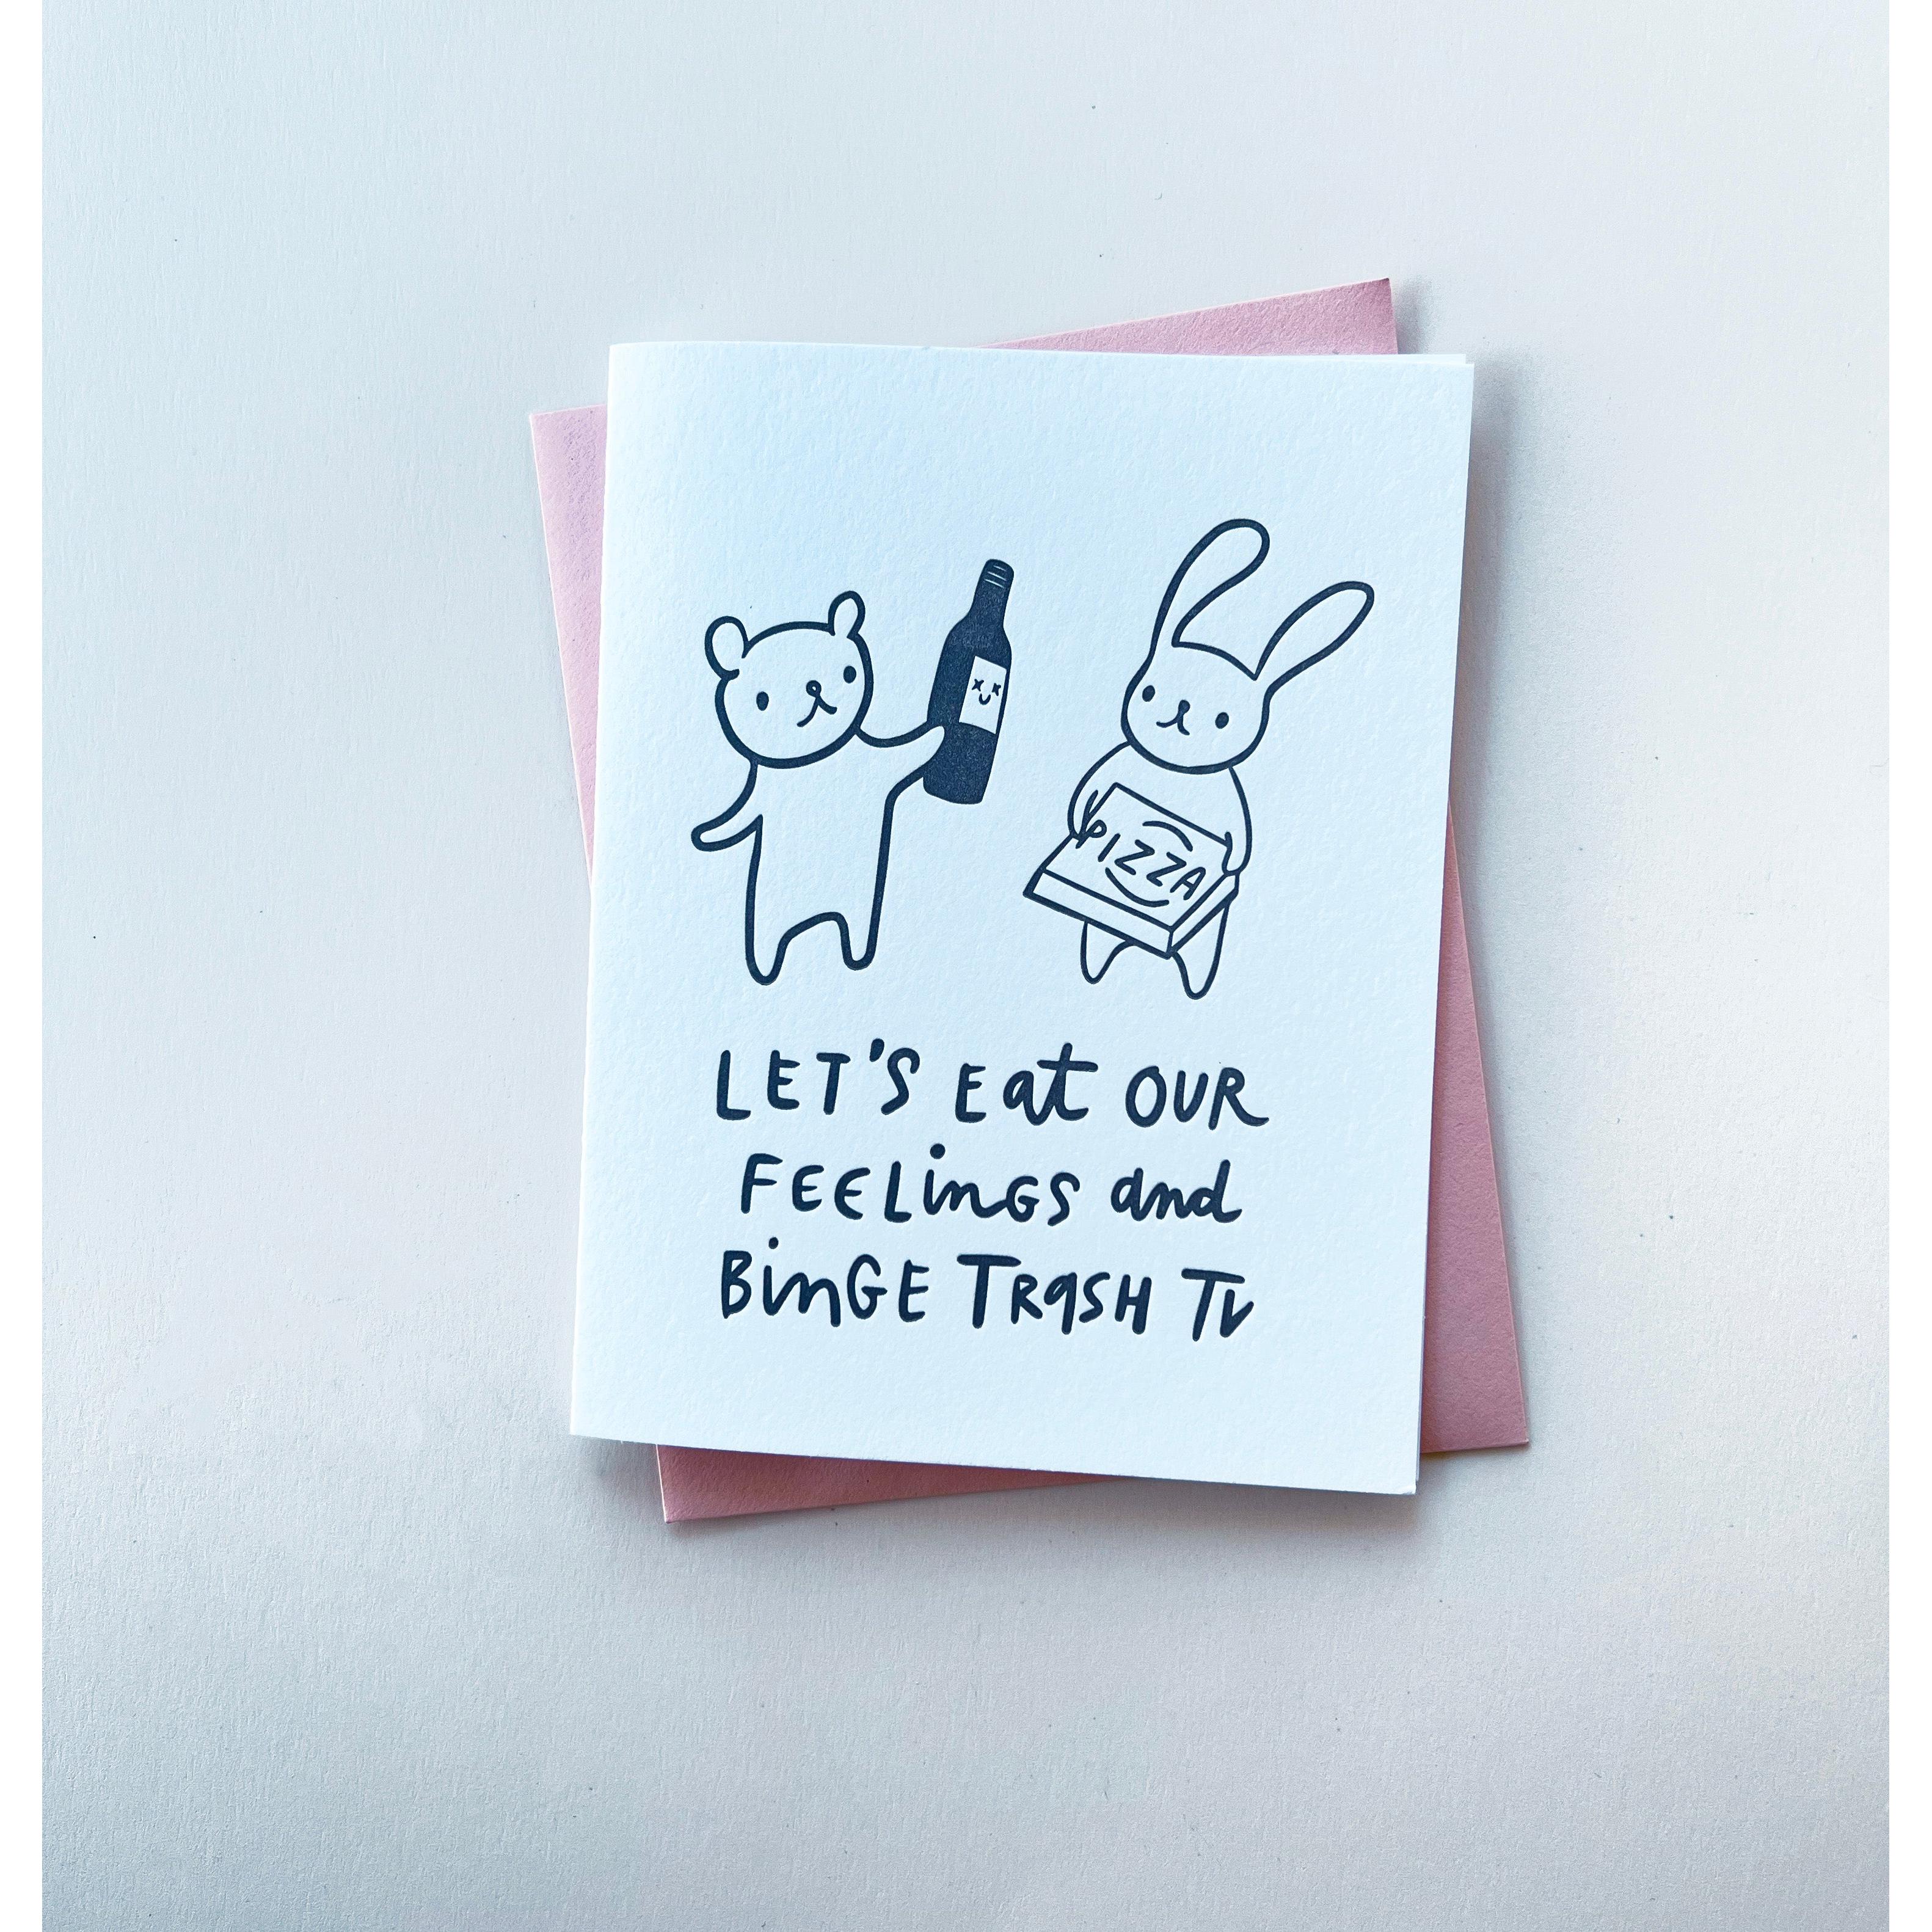 PIZZA
LET'S Eat OUR
FEELinGS and
BinGE TRaSH TV